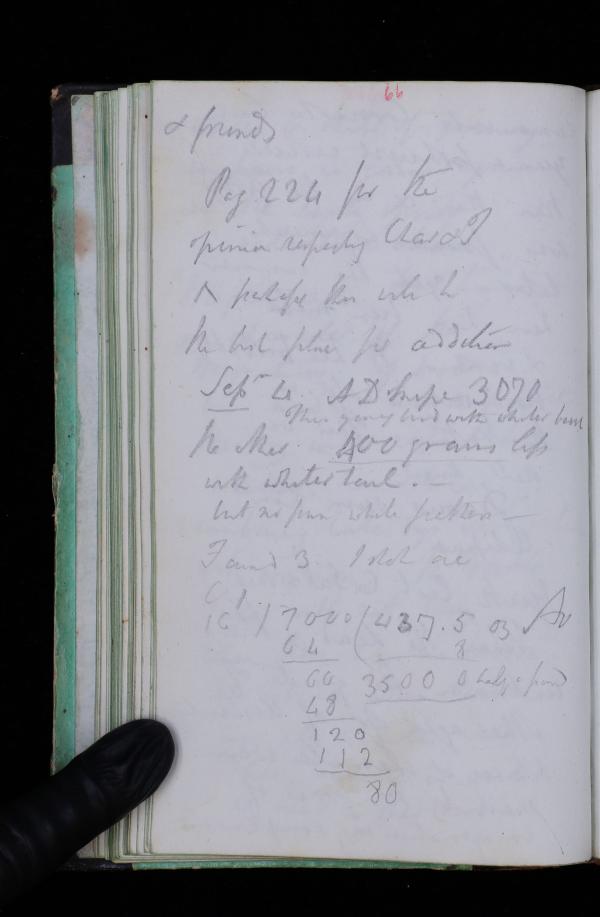 66
& friends
Pag 224 for the
opinion respecting
perhaps this will be
the best place for addition
Sepr 4. AD Snipe 3070
This young bird with whiter
the other 400 grains less
with whiter tail. —
but no pure white feathers —
Found 3. I shot one
16 ) 7000 ( 437.5 oz Av
64 8
60 3500 0 half a pound
48
120
112
80